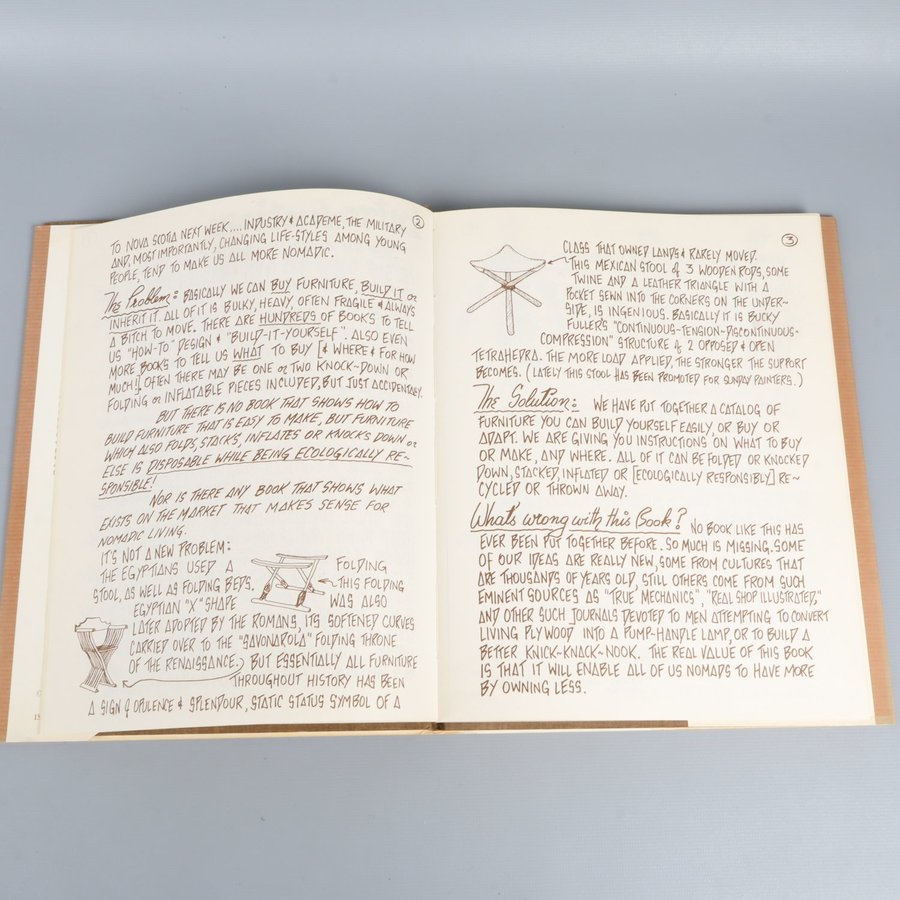 2
TO NOVA SCOTIA NEXT WEEK.... INDUSTRY & ACADEME, THE MILITARY
AND, MOST IMPORTANTLY, CHANGING LIFE-STYLES AMONG YOUNG
PEOPLE, TEND TO MAKE US ALL MORE NOMADIC.
The Problem: BASICALLY WE CAN BUY FURNITURE, BUILD IT or
INHERIT IT. ALL OF IT IS BULKY, HEAVY, OFTEN FRAGILE & ALWAYS
A BITCH TO MOVE. THERE ARE HUNDREDS OF BOOKS TO TELL
US "HOW-TO" DESIGN & "BUILD-IT-YOURSELF". ALSO EVEN
MORE BOOKS TO TELL US WHAT TO BUY [& WHERE & FOR HOW
MUCH!]. OFTEN THERE MAY BE ONE or TWO KNOCK-DOWN OR
FOLDING or INFLATABLE PIECES INCLUDED, BUT JUST ACCIDENTALLY.
BUT THERE IS NO BOOK THAT SHOWS HOW TO
BUILD FURNITURE THAT IS EASY TO MAKE, BUT FURNITURE
WHICH ALSO FOLDS, STACKS, INFLATES OR KNOCKS DOWN or
ELSE IS DISPOSABLE WHILE BEING ECOLOGICALLY RE-
SPONSIBLE!
NOR IS THERE ANY BOOK THAT SHOWS WHAT
EXISTS ON THE MARKET THAT MAKES SENSE FOR
NOMADIC LIVING.
IT'S NOT A NEW PROBLEM:
THE EGYPTIANS USED A FOLDING
STOOL, AS WELL AS FOLDING BEDS. THIS FOLDING
EGYPTIAN "X" SHAPE WAS ALSO
LATER ADOPTED BY THE ROMANS, ITS SOFTENED CURVES
CARRIED OVER TO THE "SAVONAROLA" FOLDING THRONE
OF THE RENAISSANCE. BUT ESSENTIALLY ALL FURNITURE
THROUGHOUT HISTORY HAS BEEN
A SIGN of OPULENCE & SPLENDOUR, STATIC STATUS SYMBOL OF A
3
CLASS THAT OWNED LANDS & RARELY MOVED.
THIS MEXICAN STOOL of 3 WOODEN RODS, SOME
TWINE AND A LEATHER TRIANGLE WITH A
POCKET SEWN INTO THE CORNERS ON THE UNDER-
SIDE, IS INGENIOUS. BASICALLY IT IS BUCKY
FULLER'S "CONTINUOUS-TENSION-DISCONTINUOUS-
COMPRESSION" STRUCTURE of 2 OPPOSED & OPEN
TETRAHEDRA. THE MORE LOAD APPLIED, THE STRONGER THE SUPPORT
BECOMES. (LATELY THIS STOOL HAS BEEN PROMOTED FOR SUNDAY PAINTERS.)
The Solution: WE HAVE PUT TOGETHER A CATALOG OF
FURNITURE YOU CAN BUILD YOURSELF EASILY, OR BUY OR
ADAPT. WE ARE GIVING YOU INSTRUCTIONS ON WHAT TO BUY
OR MAKE, AND WHERE. ALL OF IT CAN BE FOLDED OR KNOCKED
DOWN, STACKED, INFLATED OR [ECOLOGICALLY RESPONSIBLY] RE-
CYCLED OR THROWN AWAY.
What's wrong with this Book? NO BOOK LIKE THIS HAS
EVER BEEN PUT TOGETHER BEFORE. SO MUCH IS MISSING. SOME
OF OUR IDEAS ARE REALLY NEW, SOME FROM CULTURES THAT
ARE THOUSANDS OF YEARS OLD, STILL OTHERS COME FROM SUCH
EMINENT SOURCES AS "TRUE MECHANICS", "REAL SHOP ILLUSTRATED,"
AND OTHER SUCH JOURNALS DEVOTED TO MEN ATTEMPTING TO CONVERT
LIVING PLYWOOD INTO A PUMP-HANDLE LAMP, OR TO BUILD A
BETTER KNICK-KNACK-NOOK. THE REAL VALUE OF THIS BOOK
IS THAT IT WILL ENABLE ALL OF US NOMADS TO HAVE MORE
BY OWNING LESS.